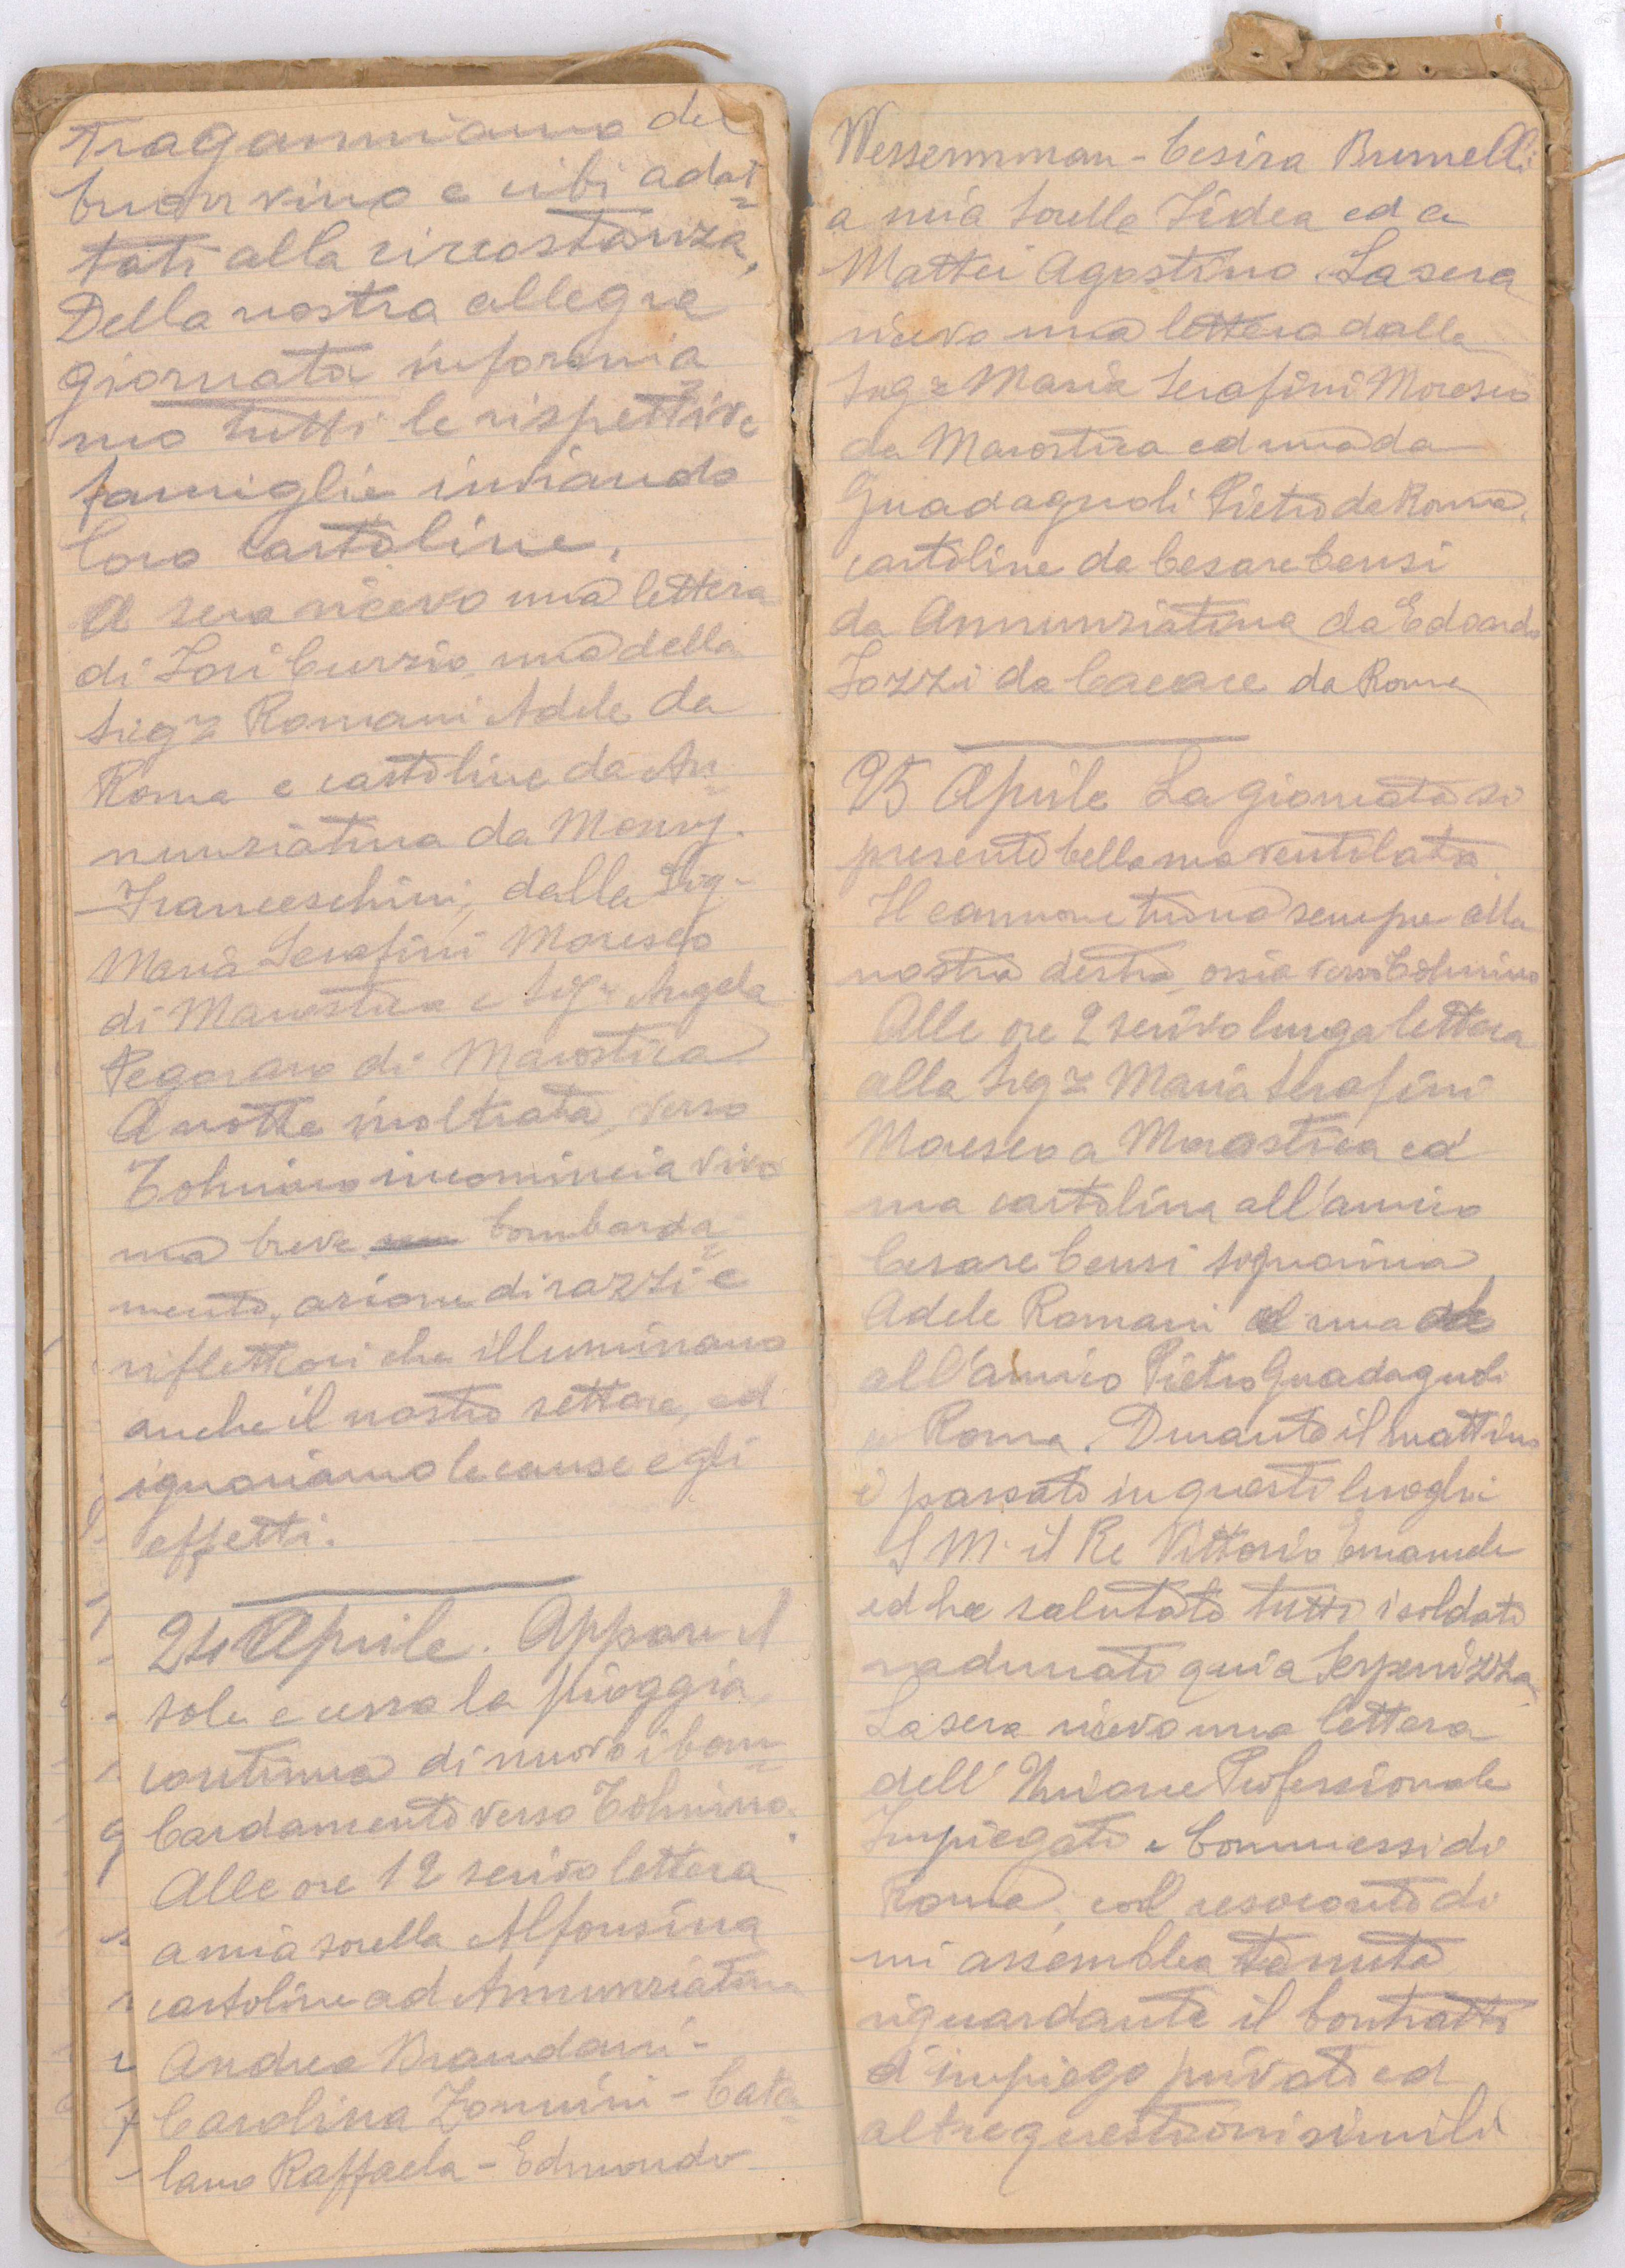 Traganniamo del
buon vino e cibi adat=
tati alla circostanza,
Della nostra allegra
giornata informia=
mo tutti le rispettive
famiglie inviando
loro cartoline.
A sera ricevo una lettera
di Lori Curzio, una della
Sigra Romani Adele da
Roma e cartoline da An=
nunziatina da Monsig.
Franceschini, dalla Sig.
Maria Serafini Moresco
di Marostica e Sigra Angela
Pegoraro di Marostica
A notte inoltrata, verso
Tolmino incomincia vivo
ma breve bombarda=
mento, azione di razzi e
riflettori che illuminano
anche il nostro settore, ed
ignoriamo le cause e gli
effetti.
24 Aprile. Appare il
sole e cessa la pioggia,
continua di nuovo i bom=
bardamento verso Tolmino.
Alle ore 12 scrivo lettera
a mia sorella Alfonsina
cartoline ad Annunziatina
Andrea Brandani -
Carolina Zannini - Cata=
lano Raffaela - Edmondo
Wessermman - Cesira Brunelli
a mia sorella Fidea ed a
Mattei Agostino. La sera
ricevo una lettera dalla
Sigra Maria Serafini Moresco
da Marostica ed una da
Guadagnoli Pietro da Roma,
cartoline da Cesare Censi
da Annunziatina da Edoardo
Iozzi da Cacace da Roma
25 Aprile La giornata si
presenta bella ma ventilata
Il cannone tuona sempre alla
nostra destra, ossia verso Tolmino
Alle ore 2 scrivo lunga lettera
alla Sigra Maria Serafini
Moresco a Marostica ed
una cartolina all'amico
Cesare Censi signorina
Adele Romani ed una
all'amico Pietro Guadagnoli
a Roma. Durante il mattino
è passato in questi luoghi
S M. il Re Vittorio Emanuele
ed ha salutato tutti i soldati
radunati qui a Serpenizza
La sera ricevo una lettera
dell' Unione Professionale
Impiegati e Commessi di
Roma, col resoconto di
un assemblea tenuta
riguardante il Contratto
d'impiego privato ed
altre questioni simili